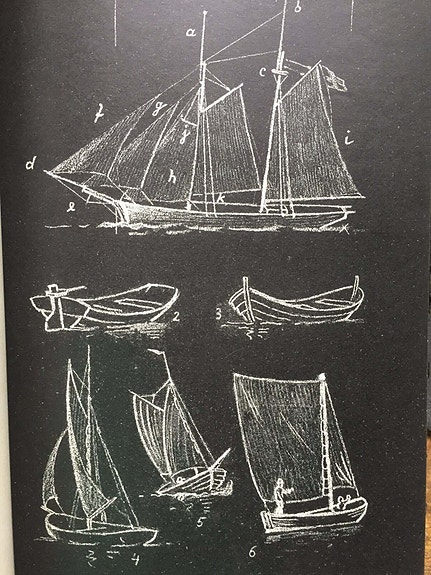 a
b
c
f
g
j
d
i
h
e
k
2
3
5
4
6